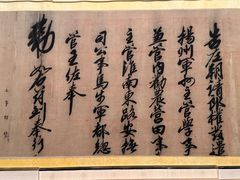 告左朝請郎權發遣
揚州軍州主管學事
兼管内勸農營田事
主管淮南東路安撫
司公事馬步軍都總
管王佐奉
勅如右符到奉行